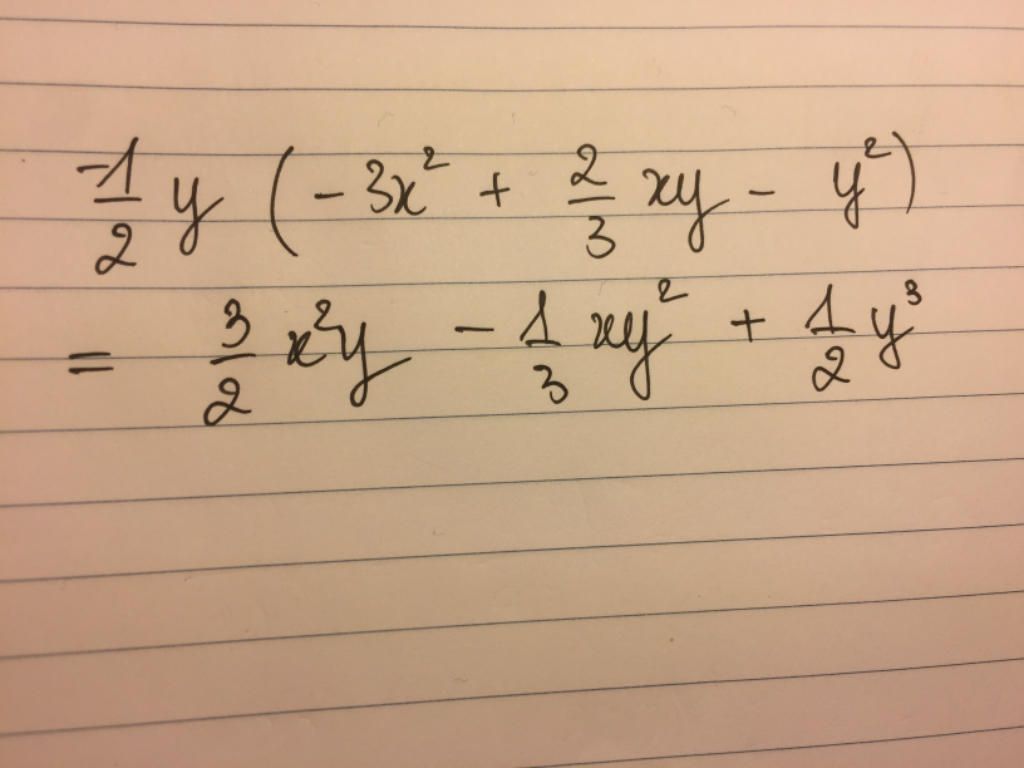 -1/2 y (-3x² + 2/3 xy - y²)
= 3/2 x²y - 1/3 xy² + 1/2 y³